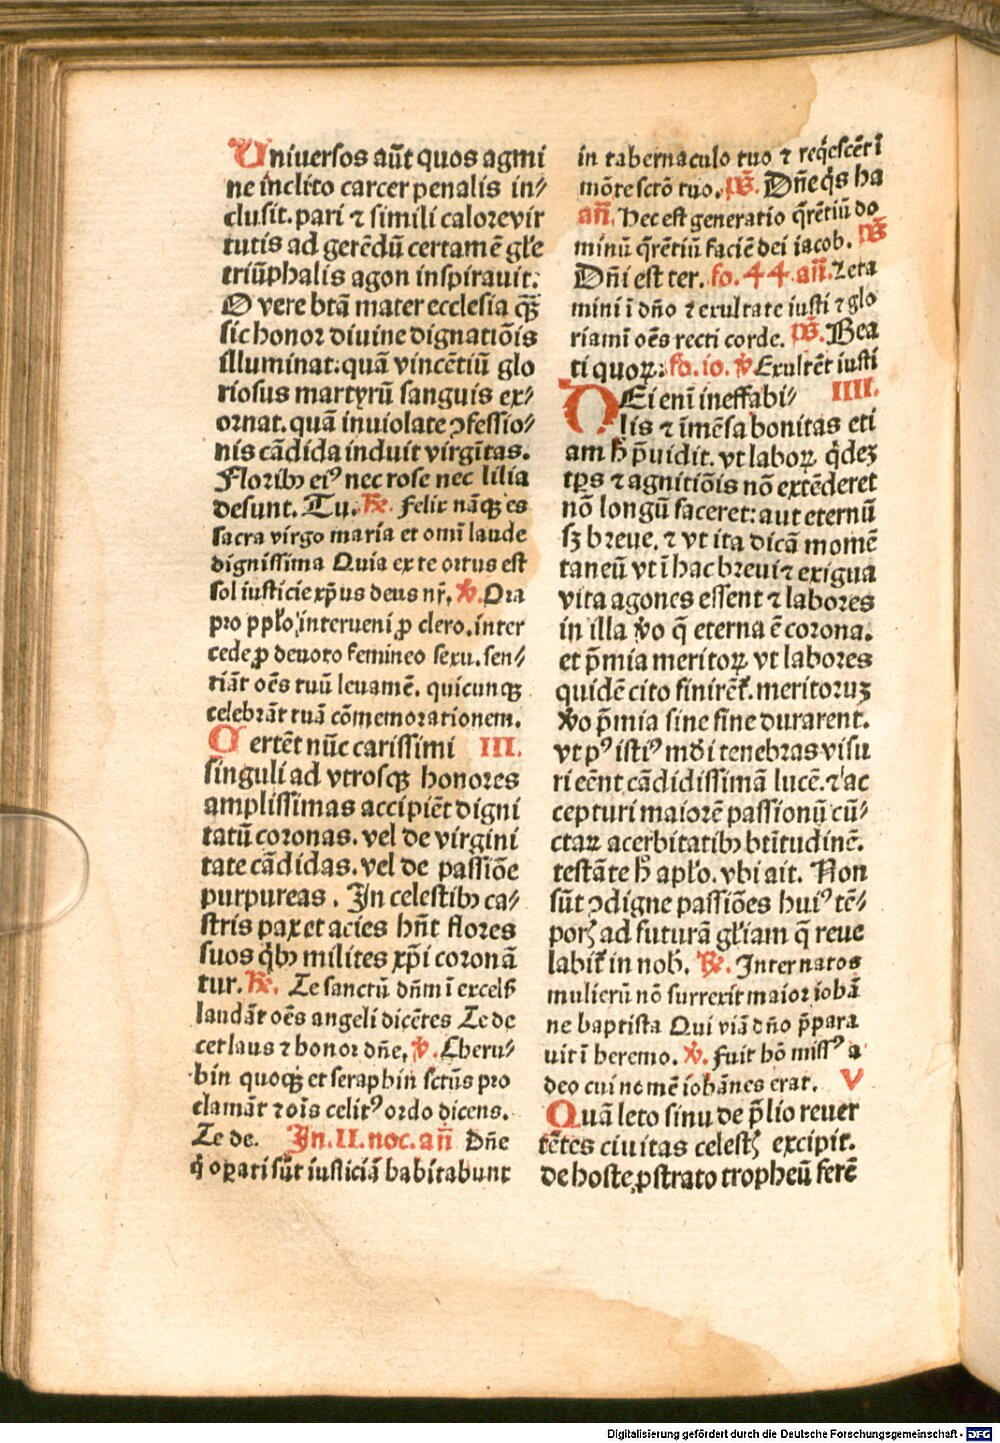 Uniuersos aūt quos agmi
ne inclito carcer penalis in⸗
clusit. pari ⁊ simili calore vir
tutis ad gerēdū certamē gl̄e
triūphalis agon inspirauit:
O vere btā mater ecclesia qꝫ̄
sic honor diuine dignatiōis
illuminat: quā vincētiū glo
riosus martyrū sanguis ex⸗
ornat. quā inuiolate ꝯfessio⸗
nis cādida induit virgītas.
Floribꝫ eiꝰ nec rose nec lilia
desunt. Tu. R̄e. Felix nāqꝫ es
sacra virgo maria et omī laude
dignissima Quia ex te ortus est
sol iusticie xp̄us deus nr̄. v̄. Ora
pro pplo, interueni ꝓ clero. inter
cede ꝓ deuoto femineo sexu. sen⸗
tiāt oēs tuū leuamē. quicunqꝫ
celebrāt tuā cōmemorationem.
Certēt nūc carissimi III.
singuli ad vtrosqꝫ honores
amplissimas accipiēt digni
tatū coronas. vel de virgini
tate cādidas. vel de passiōe
purpureas. In celestibꝫ ca⸗
stris pax et acies hn̄t flores
suos q̇bꝫ milites xp̄i coronā
tur. R̄e. Te sanctū dn̄m ī excels̄
laudāt oēs angeli dicētes Te de
cet laus ⁊ honor dn̄e, v̄. Cheru⸗
bin quoqꝫ et seraphin sctūs pro
clamāt ⁊ oīs celitꝰ ordo dicens.
Te de. In. II. noc. an̄ Dn̄e
q̇ oꝑati sūt iusticiā habitabunt
in tabernaculo tuo ⁊ reqͥescēt ī
mōte scrō tuo. ps̄. Dn̄e qͥs ha
an̄. Hec est generatio q̄rētiū do
minū q̄rētiū faciē dei iacob. ps̄
Dn̄i est ter. fo. 44 an̄. Leta
mini ī dn̄o ⁊ exultate iusti ⁊ glo
riami oēs recti corde. ps̄. Bea
ti quoꝝ: fo. io. v̄ Exultēt iusti
DEi enī ineffabi⸗ IIII.
lis ⁊ īmēsa bonitas eti
am h̄ p̄uidit. vt laboꝝ q̇dez
tp̄s ⁊ agnitiōis nō extēderet
nō longū faceret: aut eternū
sꝫ breue. ⁊ vt ita dicā momē
taneū vt ī hac breui ⁊ exigua
vita agones essent ⁊ labores
in illa v̄o q̄ eterna ē corona.
et p̄mia meritoꝝ vt labores
quidē cito finirēt̄. meritoruꝫ
v̄o p̄mia sine fine durarent.
vt pꝰ istiꝰ mūdi tenebras visu
ri eēnt cādidissimā lucē. ⁊ ac
cepturi maiorē passionū cū⸗
ctaꝝ acerbitatibꝫ btītudinē.
testāte h̄ aplo. vbi ait. Non
sūt ꝯdigne passiōes huiꝰ tē⸗
porꝭ ad futurā gl̄iam q̄ reue
labit̄ in nob̄. R̄e. Inter natos
mulierū nō surrexit maior iohā
ne baptista Qui viā dn̄o p̄para
uit ī heremo. v̄. Fuit hō missꝰ a
deo cui nomē iohānes erat. V
Quā leto sinu de p̄lio reuer
tētes ciuitas celestꝭ excipit.
de hoste ꝓstrato tropheū ferē
Digitalisierung gefördert durch die Deutsche Forschungsgemeinschaft - DFG